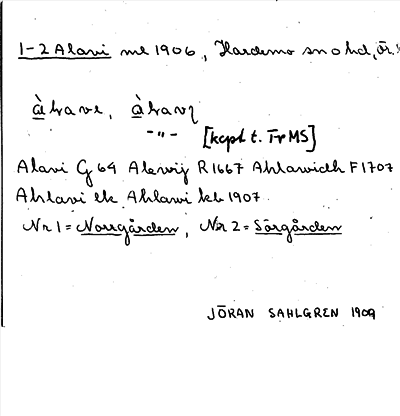 1-2 Alavi ml 1906, Hardemo sn o hd, Ör.
àlave, àlavi
-"- [kopl t. Fr MS]
Alavi G 69 Alewij R 1667 Ahlawidh F 1707
Ahlavi lk Ahlawi kb 1907
Nr 1 = Norrgården, Nr 2 = Sörgården
JÖRAN SAHLGREN 1909